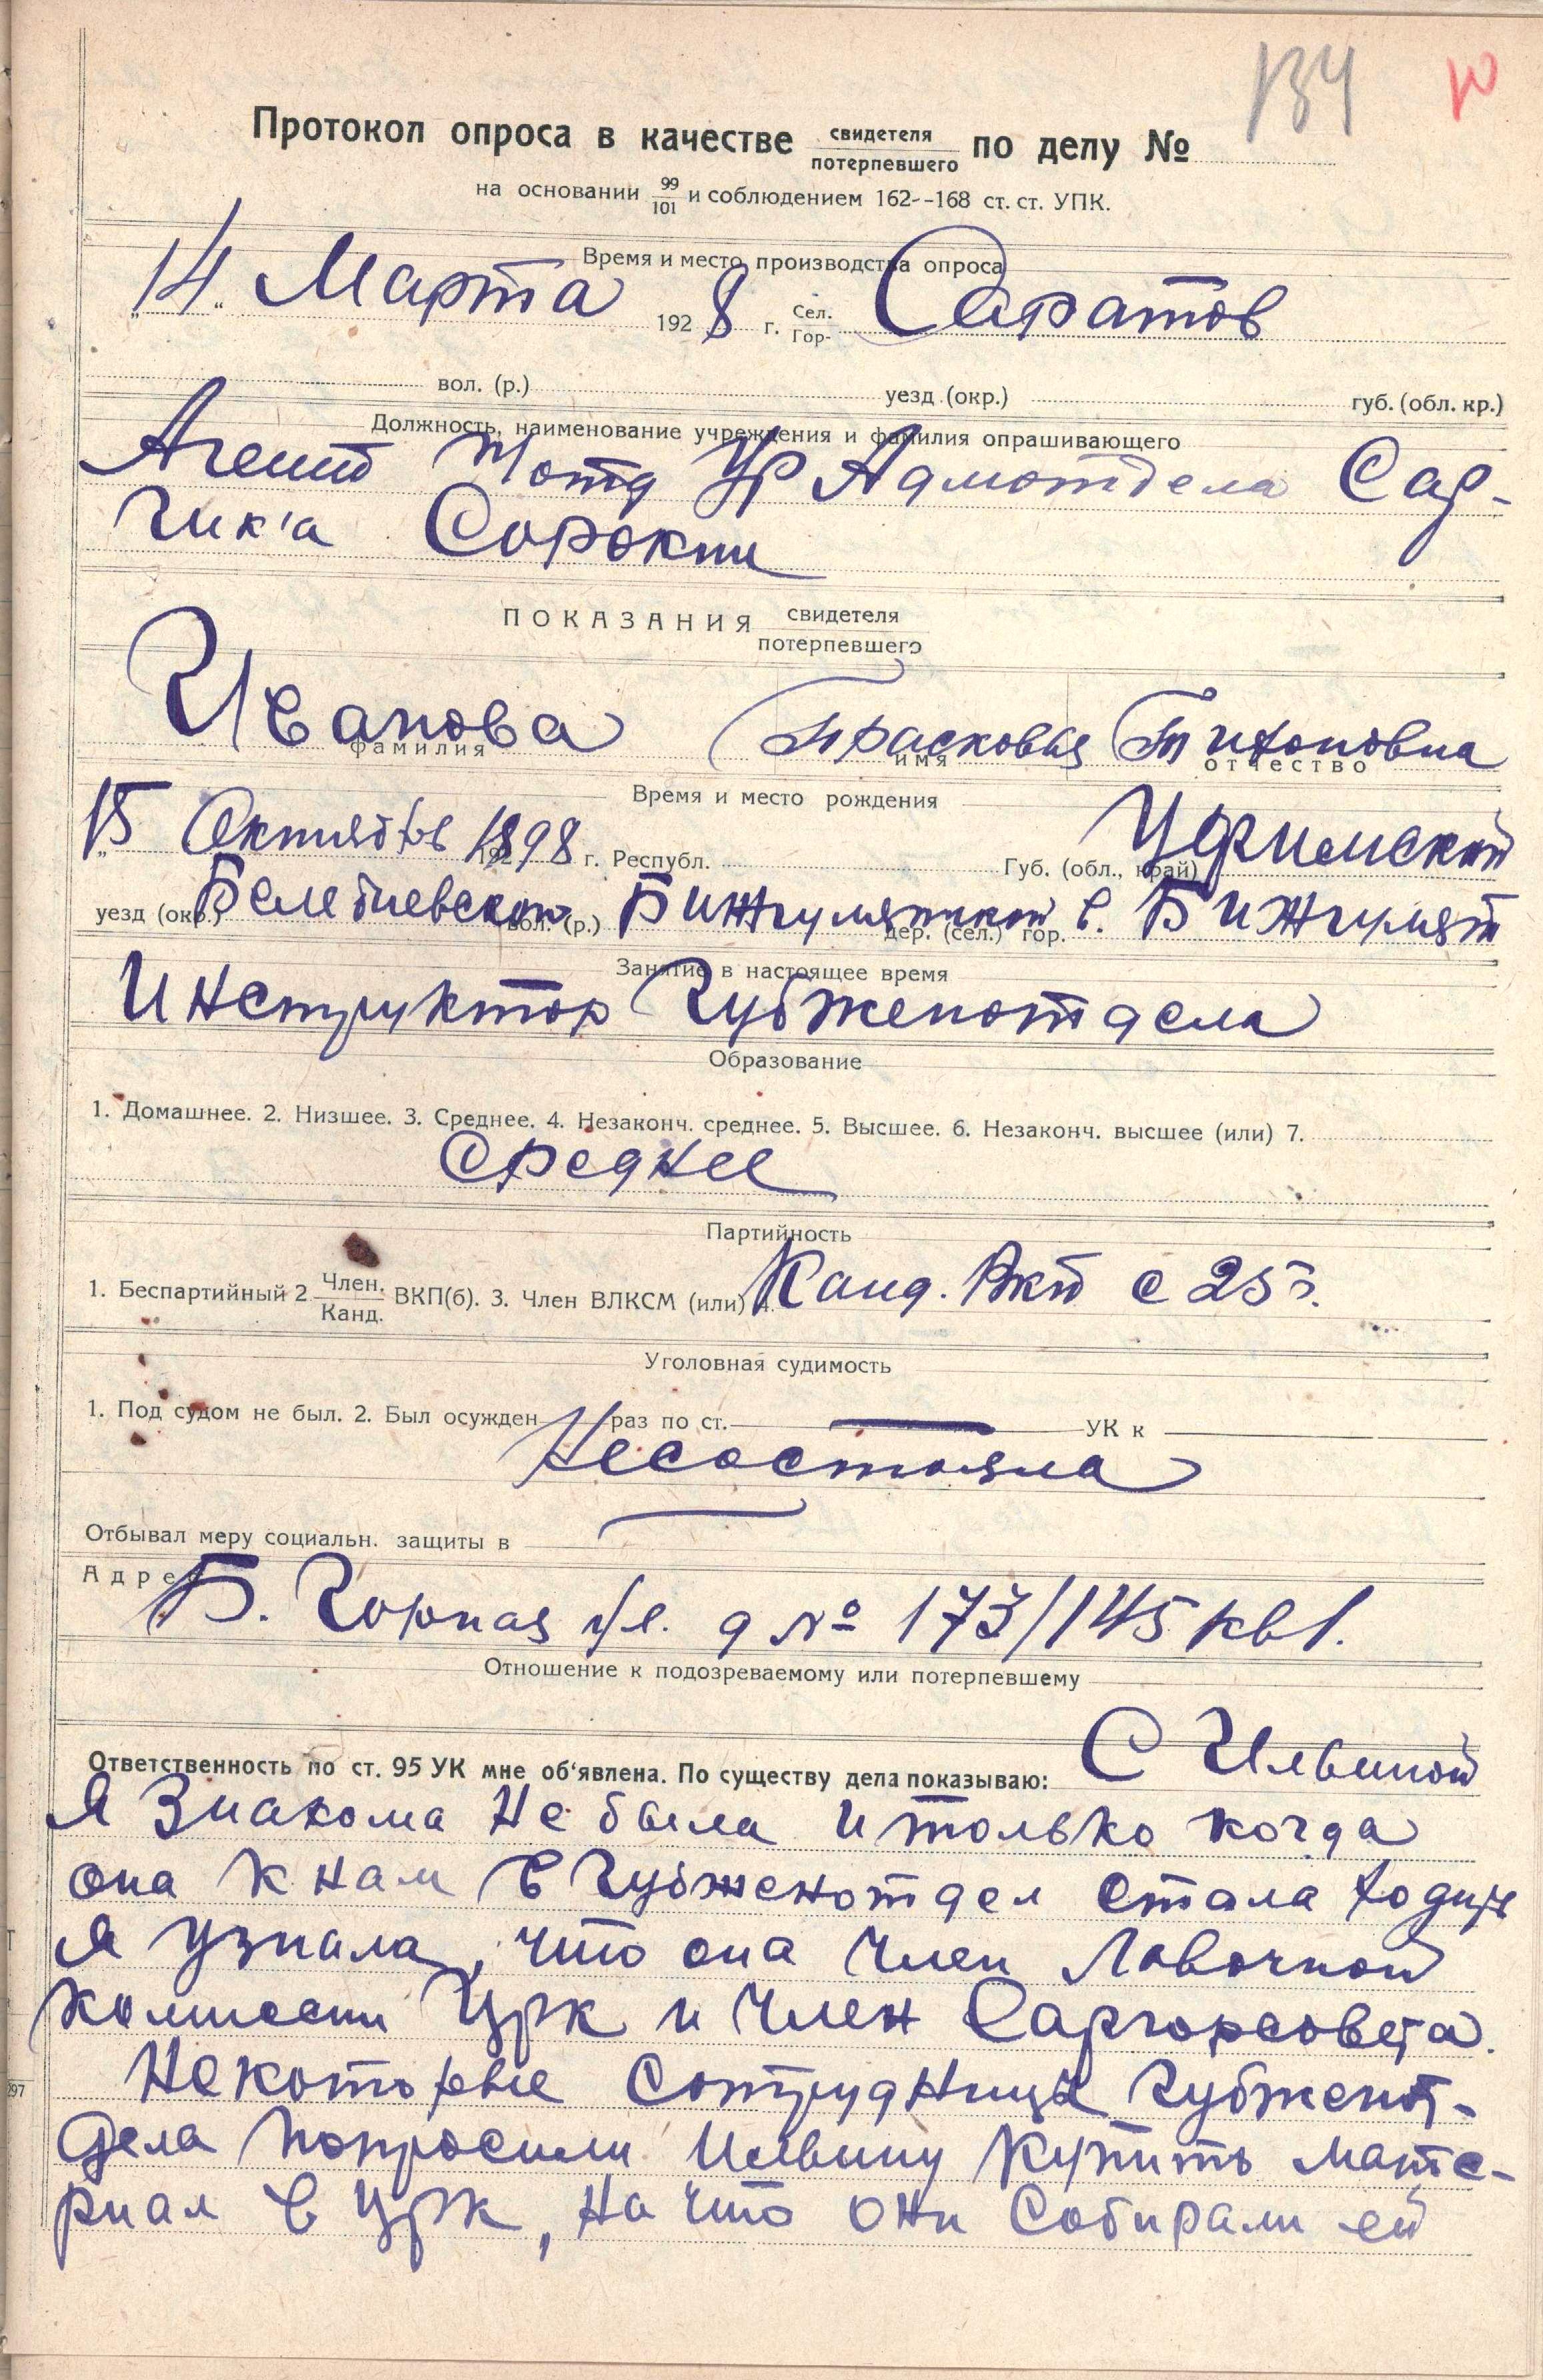 134 10
Протокол опроса в качестве свидетеля потерпевшего по делу №
на основании 99/101 и соблюдением 162--168 ст. ст. УПК.
Время и место производства опроса
„14“ Марта 1928 г. Сел. Гор- Саратов
вол. (р.) уезд (окр.) губ. (обл. кр.)
Должность, наименование учреждения и фамилия опрашивающего
Агент отд УР Адмотдела Сар-
Гик'а Сорокин
ПОКАЗАНИЯ свидетеля потерпевшего
Иванова Прасковья Тихоновна
фамилия имя отчество
Время и место рождения
„15 Октября 1898 г. Республ. Губ. (обл., край) Уфимской
уезд (окр.) Белебиевской вол. (р.) дер. (сел.) гор. с.
Занятие в настоящее время
Инструктор Губженотдела
Образование
1. Домашнее. 2. Низшее. 3. Среднее. 4. Незаконч. среднее. 5. Высшее. 6. Незаконч. высшее (или) 7.
Среднее
Партийность
1. Беспартийный 2 Член. Канд. ВКП(б). 3. Член ВЛКСМ (или) 4. Канд. Вкп с 25 г.
Уголовная судимость
1. Под судом не был. 2. Был осужден раз по ст. УК к
Несостояла
Отбывал меру социальн. защиты в
Адрес Б. Горная ул. д № 173/145 кв 1.
Отношение к подозреваемому или потерпевшему
Ответственность по ст. 95 УК мне об'явлена. По существу дела показываю: С Ильиной
Я Знакома не была и только когда
она к нам в Губженотдел стала ходить
я узнала, что она член Лавочной
комиссии Црк и Член Саргорсовета.
Некоторые Сотрудницы Губженот-
дела попросили Ильину купить мате-
риал в Црк, на что они Собирали ей